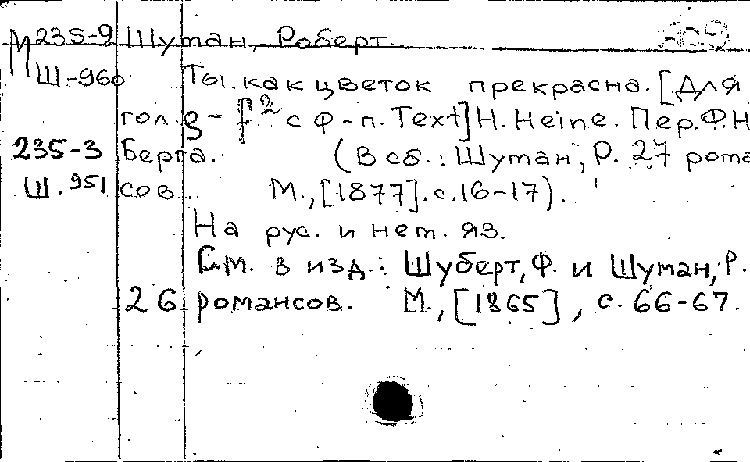 М 235-9 Шуман, Роберт.
Ш-960 Ты как цветок прекрасна. [Для
гол. g-f² с ф-п. Text] H. Heine. Пер. Ф.Н
235-3 Берга. (В сб.: Шуман, Р. 27 рома
Ш.951 сов. М., [1877]. с.16-17).
На рус. и нем. яз.
См. в изд.: Шуберт, Ф. и Шуман, Р.
26 романсов. М., [1865], с. 66-67.